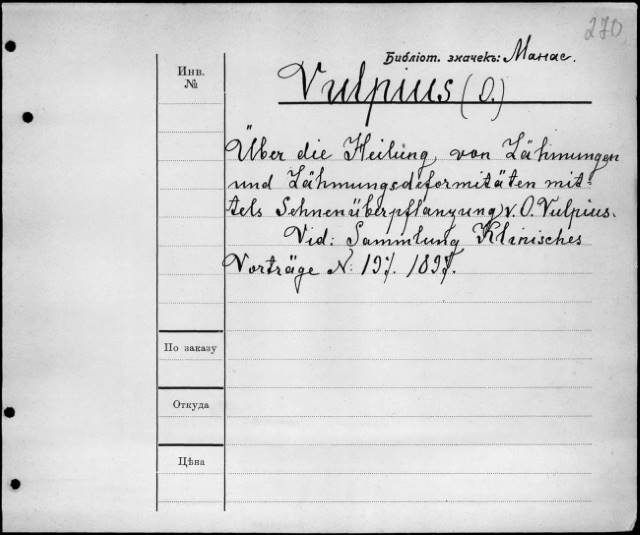 270
Библіот. значекъ: Манас.
Инв.
№
Vulpius (O.)
Über die Heilung von Lähmungen
und Lähmungsdeformitäten mit-
tels Sehnenüberpflanzung v. O. Vulpius.
Vid: Sammlung Klinisches
Vorträge N: 197. 1897.
По заказу
Откуда
Цѣна